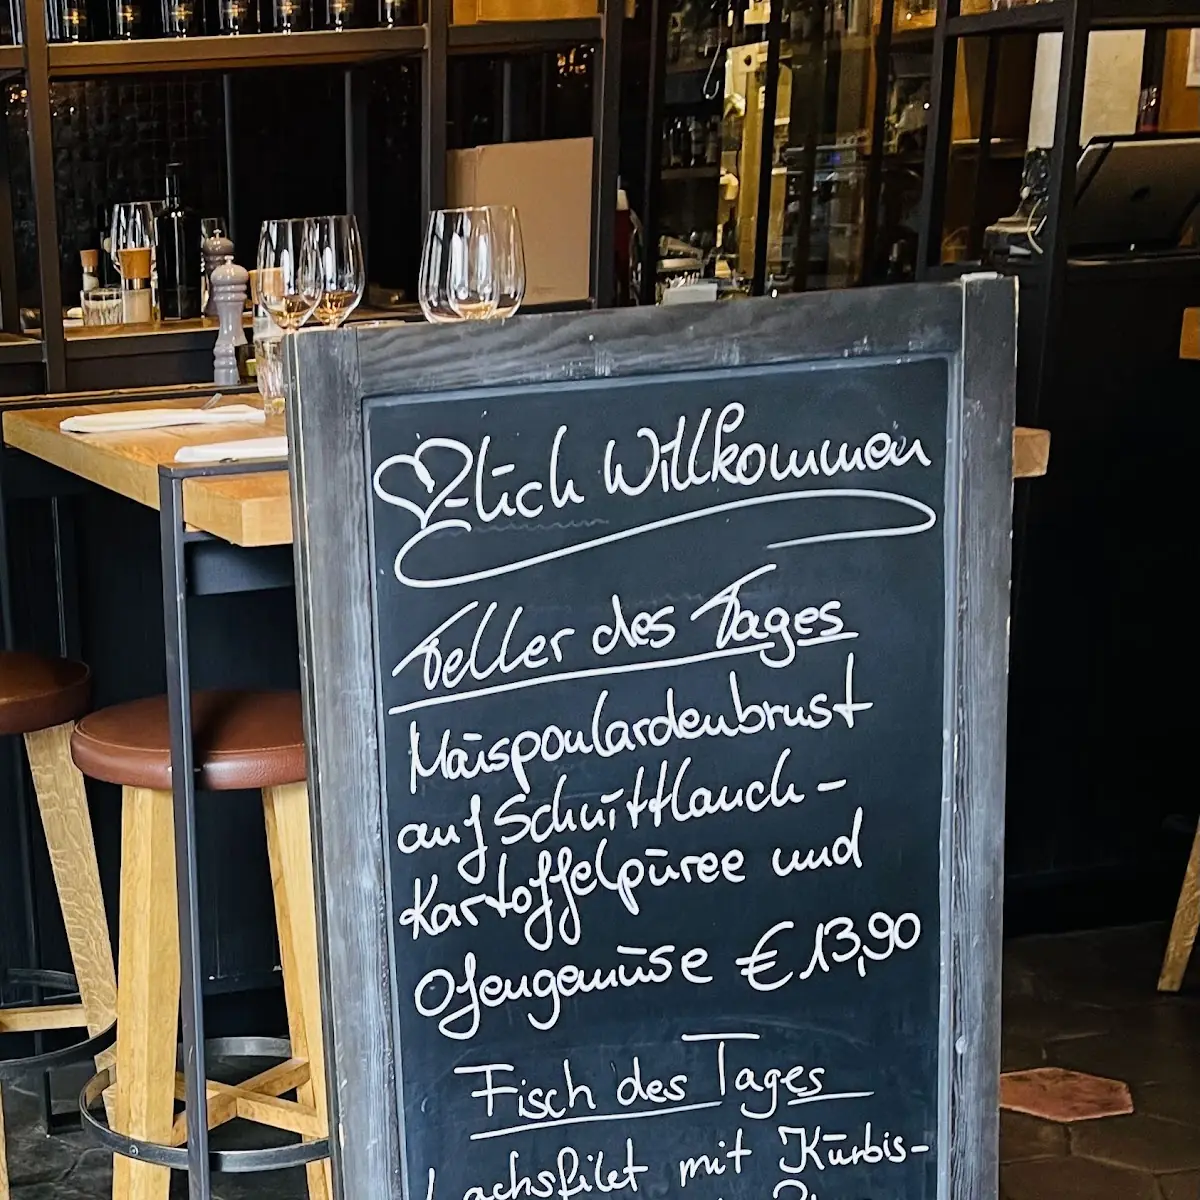 ♡-lich Willkommen
Teller des Tages
Maispoulardenbrust
auf Schnittlauch-
Kartoffelpüree und
Ofengemüse € 13,90
Fisch des Tages
Lachsfilet mit Kürbis-